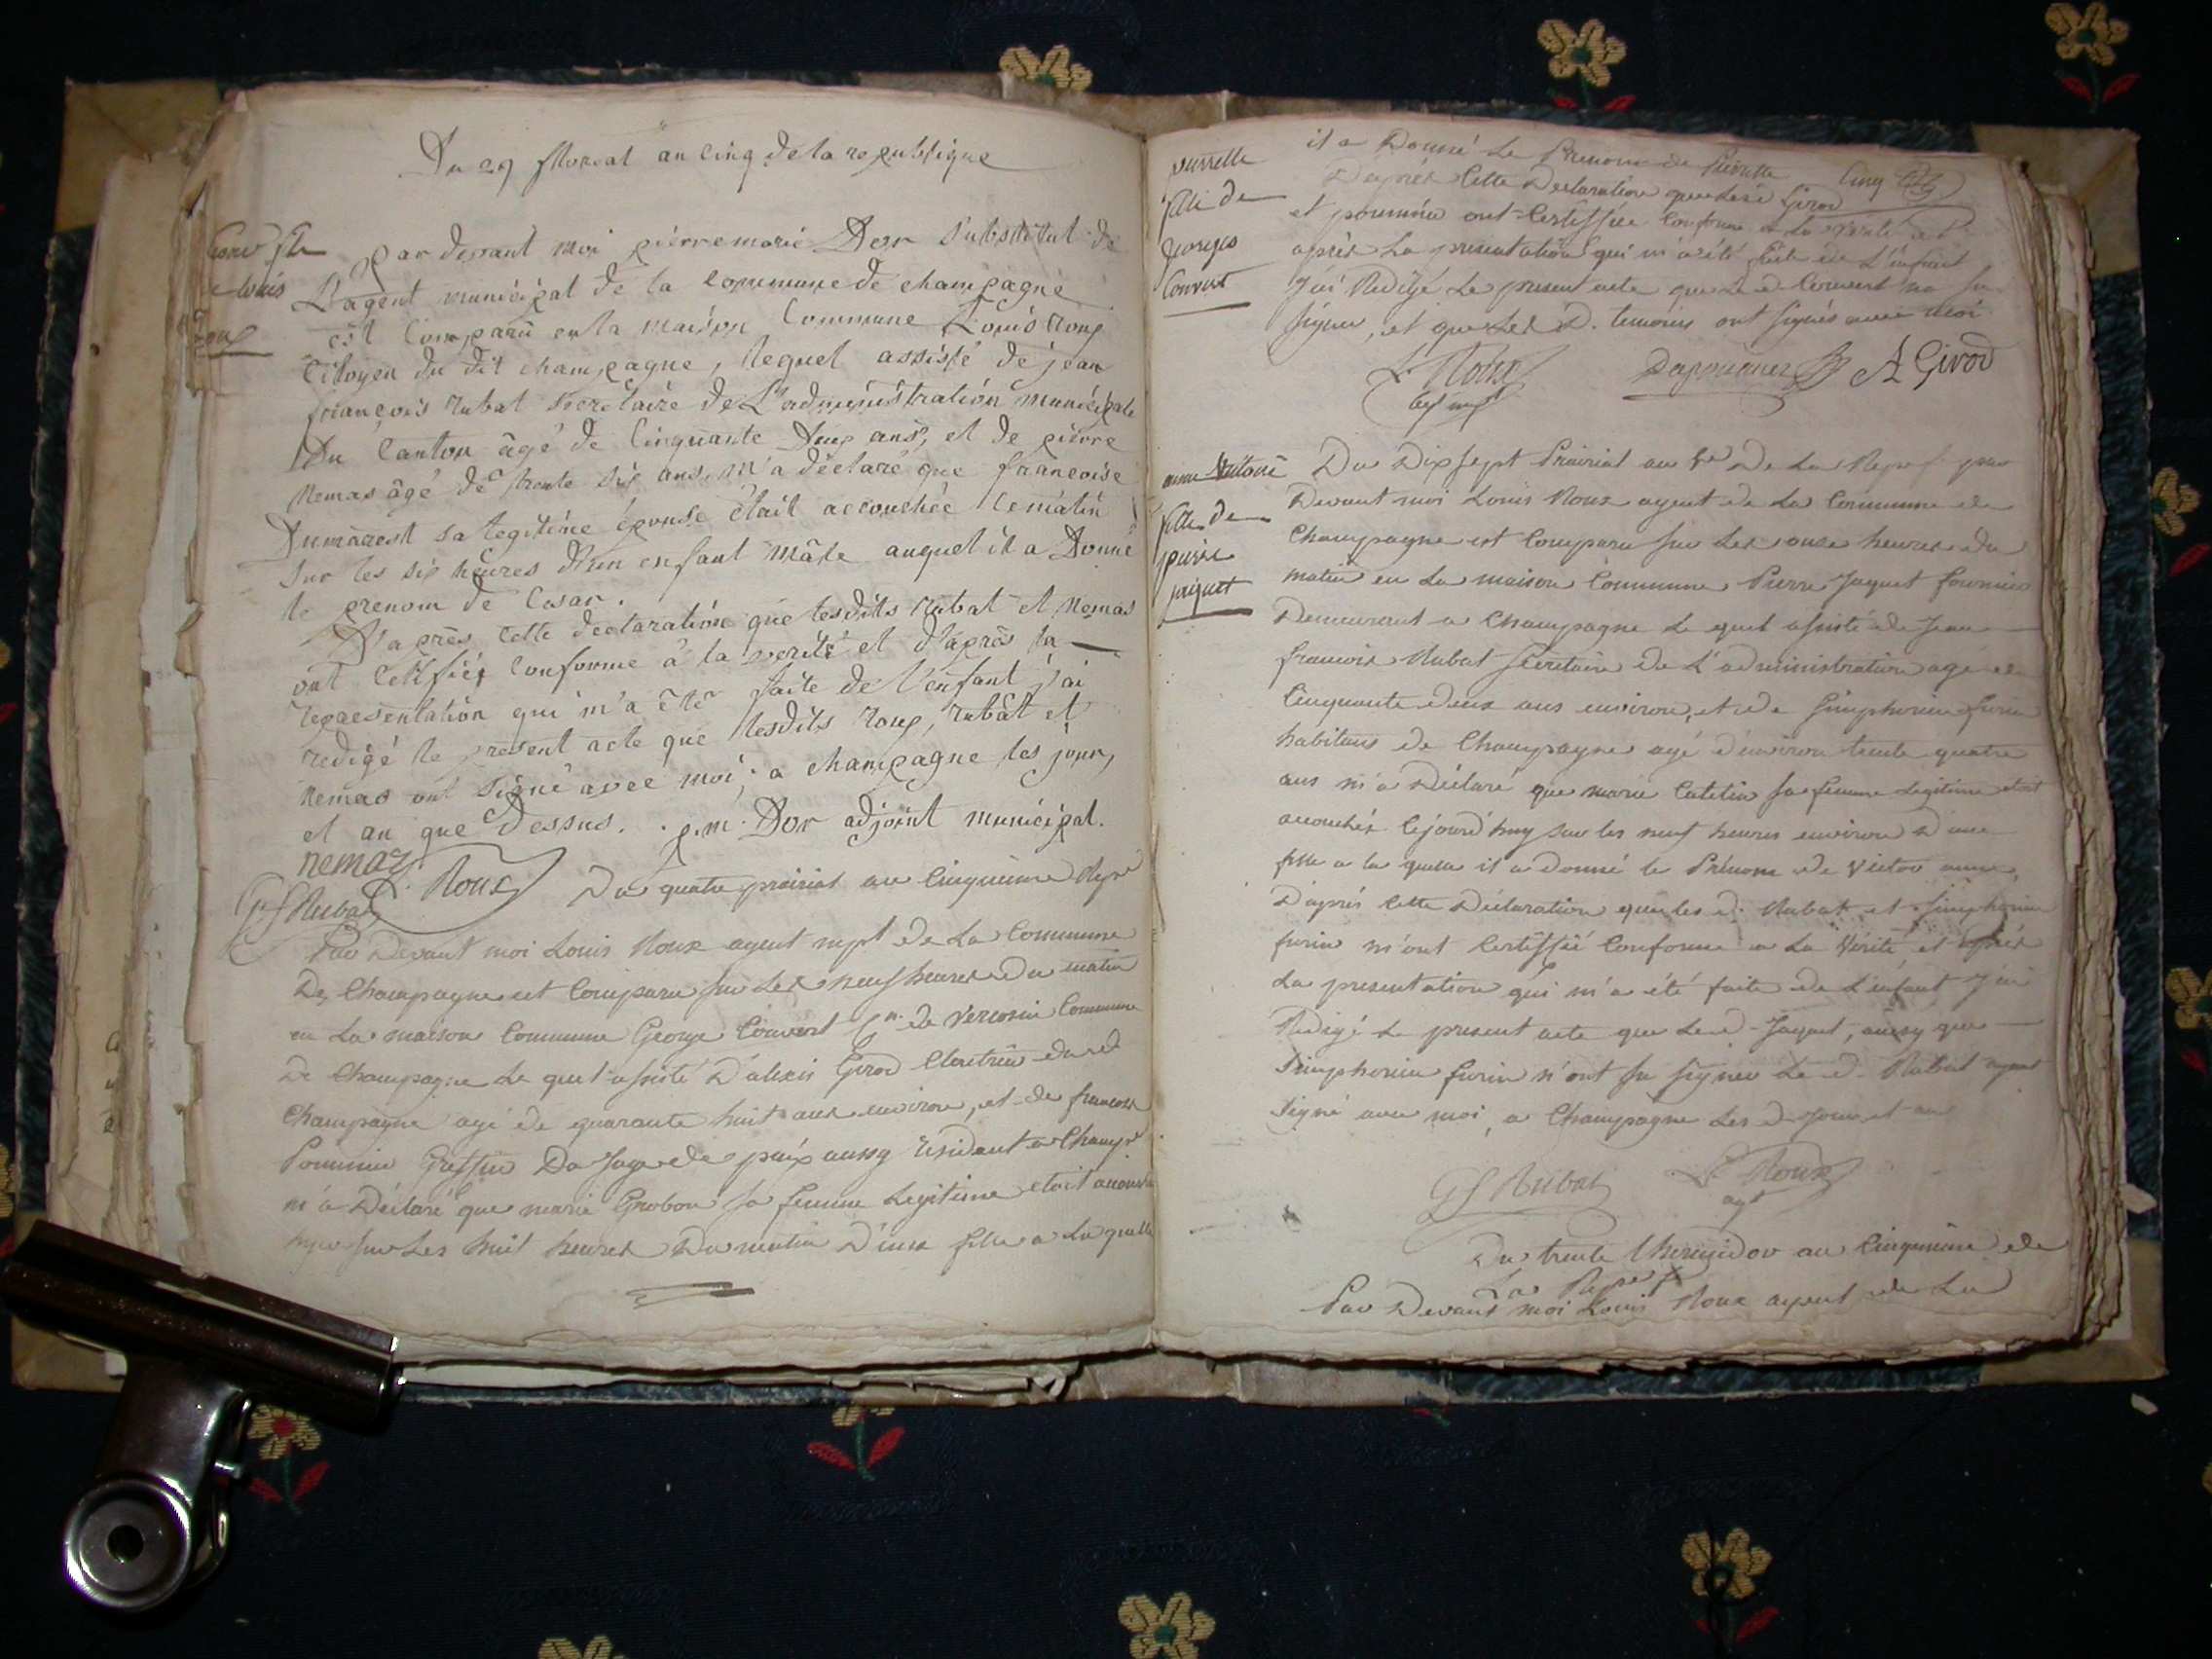 Du 29 floreal an cinq de la republique
Cesar fils
de Louis
roux
par devant moi pierre marie Dor substitut de
L'agent municipal de la commune de champagne
est comparû en la maison commune Louis roux
citoyen du dit champagne, lequel assisté de jean
françois rubat secretaire de L'administration municipale
Du canton âgé de cinquante deux ans, et de pierre
nemas âgé de trente six ans, m'a déclaré que francoise
Dumarest sa legitime épouse était accouchée ce matin
sur les six heures d'un enfant mâle auquel il a donné
le prenom de Cesar.
D'après cette declaration que lesdits rubat et nemas
ont certifiés conforme à la verité et d'après la
representation qui m'a été faite de l'enfant j'ai
redigé le present acte que lesdits roux, rubat et
nemas ont signé avec moi, a champagne les jour,
et an que dessus. p. m. Dor adjoint municipal.
nemaz
L. Roux
JfRubat
Du quatre prairial an cinquieme Repe
Par Devant moi Louis Roux agent mpl de La Commune
De Champagne est Comparu sur Les neuf heures Du matin
en La maison Commune George Convert de Vercosin Commune
De Champagne Le quel assisté D'alexis Girod dud
Champagne agé de quarante huit ans environ, et de francois
Pommier Greffier Du Juge de paix aussy résidant a Champe
m'a Déclaré que marie Grobon sa femme Legitime etoit accouchée
hyer sur Les huit heures Du matin D'une fille a La quelle
pierrette
fille de
georges
Convert
il a Donné Le Prenom de Pierrette
Cinq
D'après Cette Declaration que Lesd Girod
et pommier ont Certiffiée Conforme a La Vérité et
après La presentation qui m'a été faite de L'enfant
J'ai Rédigé Le present acte que Le d. Convert na su
signer, et que Les D. temoins ont signés avec moi
L. Roux
agt mpl
Dapommier
A Girod
anne Victoire
fille de
pierre
jaquet
Du Dix sept Prairial an 5e De La Repe par
Devant moi Louis Roux agent de La Commune de
Champagne est Comparu sur Les onze heures du
matin en La maison Commune Pierre Jaquet fournier
Demeurant a Champagne Le quel assisté de Jean
francois Rubat secretaire de L'administration agé de
Cinquante deux ans environ, et de Simphorien furin
habitans de Champagne agé d'environ trente quatre
ans m'a Déclaré que marie Catetin sa femme Legitime etoit
accouchée cejourd'huy sur les neuf heures environ D'une
fille a la quelle il a donné le Prénom de Victoi anne,
D'après Cette Déclaration que les d. Rubat et Simphorien
furin m'ont Certiffié Conforme a La Vérité, et après
La presentation qui m'a été faite de L'enfant J'ai
Rédigé Le present acte que Le d. Jaquet, aussy que
Simphorien furin n'ont su signer Le d. Rubat ayant
signé avec moi, a Champagne Les d. Jour et an
JfRubat
L. Roux
agt
Du trente thermidor an Cinquieme de
La Repe
Par Devant moi Louis Roux agent de La